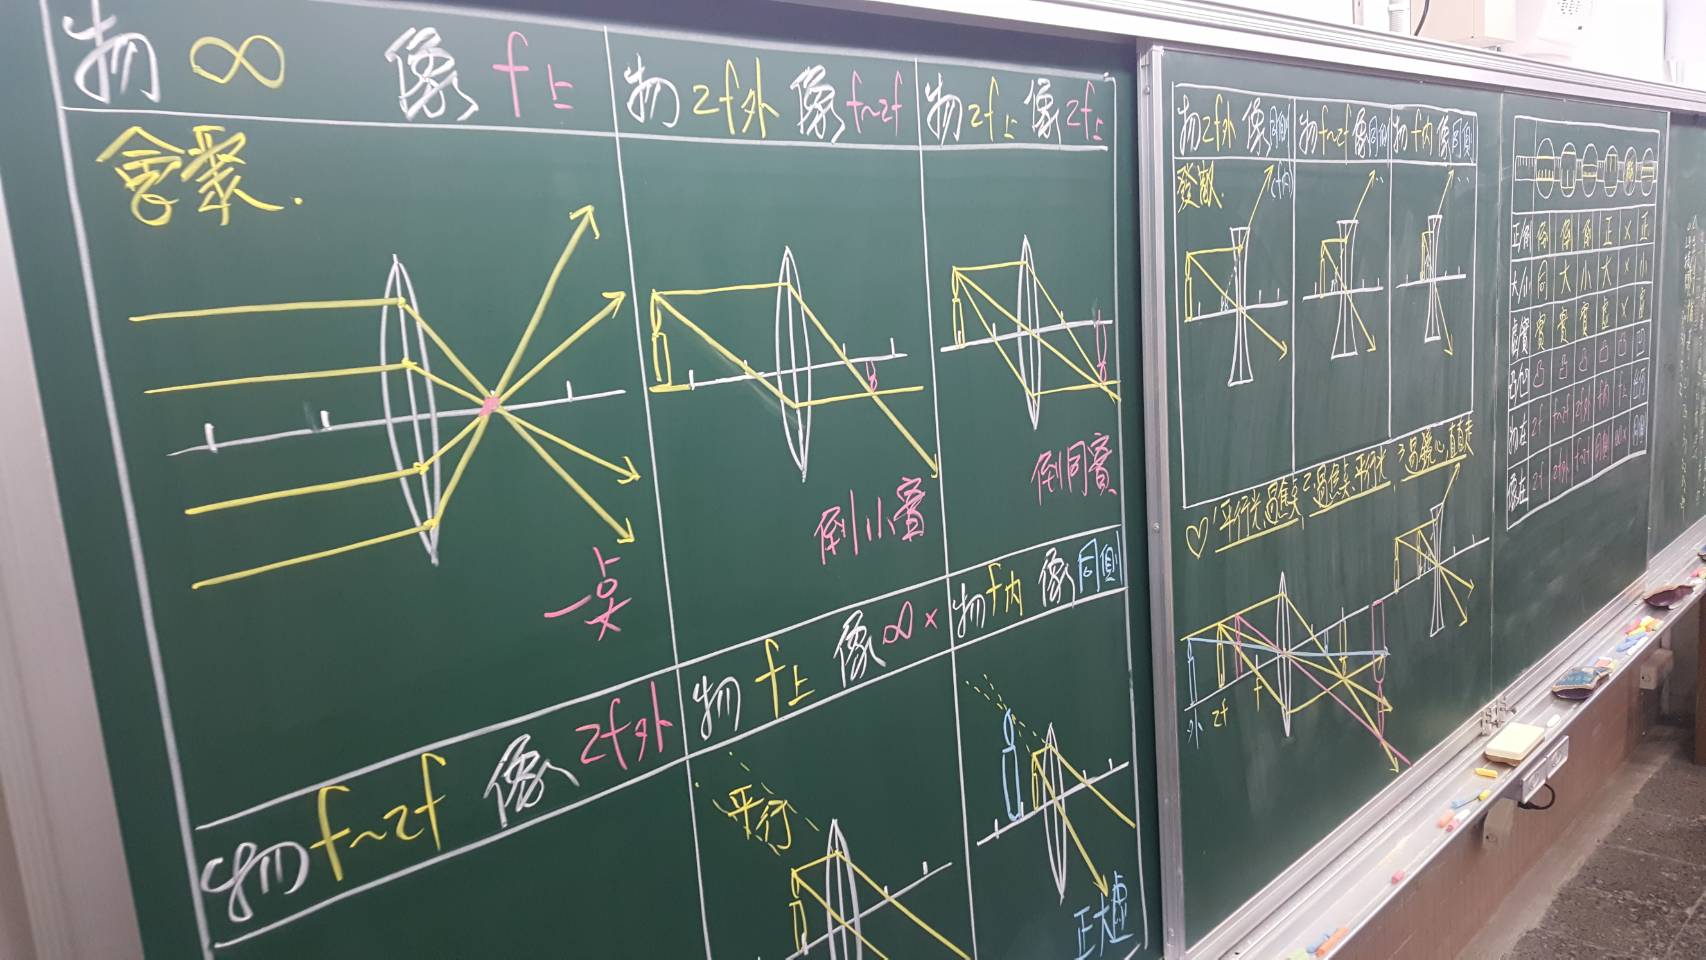 物 ∞ 像 f上
會聚.
一点
物 2f外 像 f~2f
倒小實
物 2f上 像 2f上
倒同實
物 f~2f 像 2f外
物 f上 像 ∞ ×
平行
物 f內 像 同側
正大虛
物 2f外 像 同側
發散.
物 f~2f 像 同側
物 f內 像 同側
♡ 1.平行光過焦点 2.過焦点平行光 3.過鏡心直直走
外 2f f
正倒 倒 倒 倒 正 × 正
大小 同 大 小 大 × 小
虛實 實 實 實 虛 × 虛
凸凹 凸 凸 凸 凸 凸 凹
物在 2f f~2f 2f外 f內 f上
像在 2f 2f外 f~2f 同側 同側